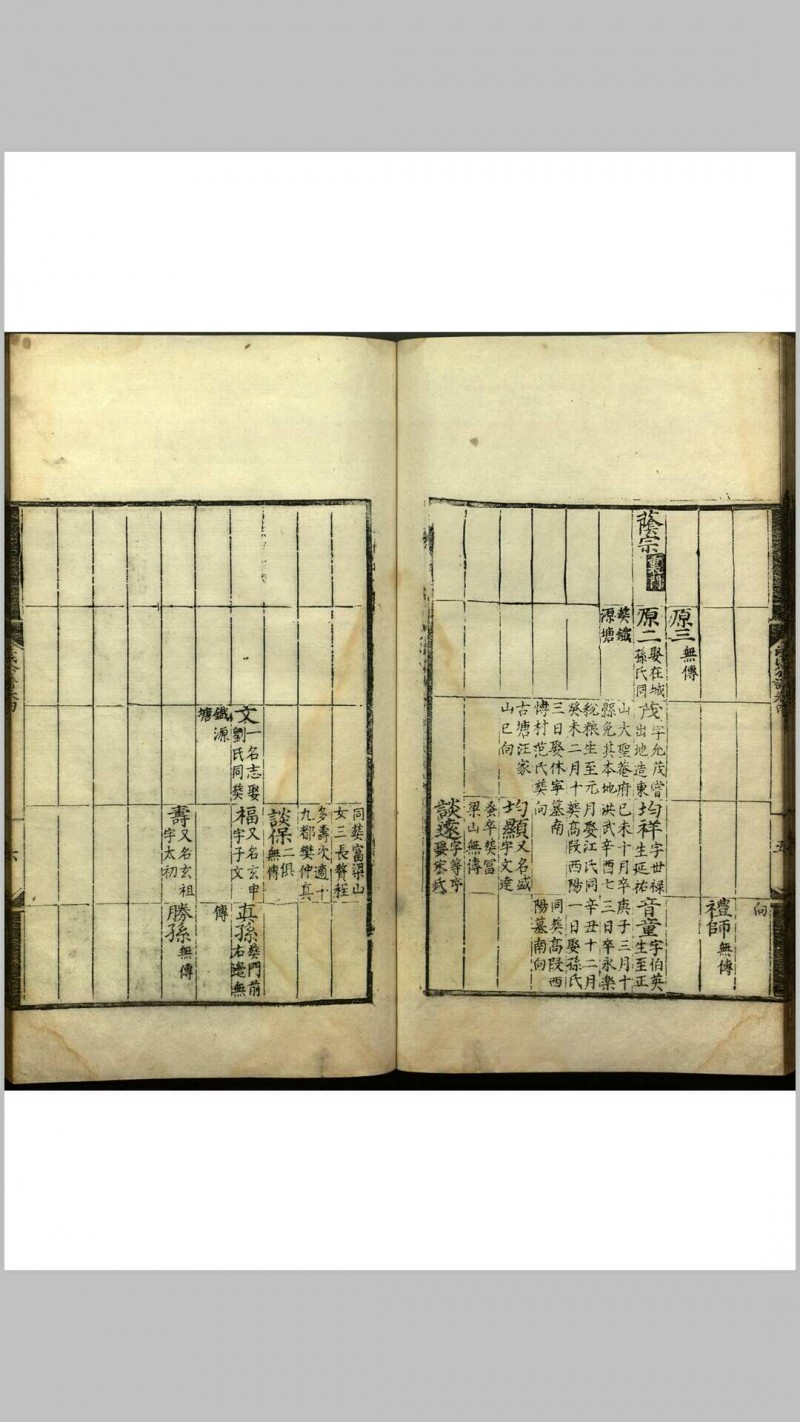 蔭宗
裏門
原三
無傳
原二
娶在城
孫氏同
葬鐵
源塘
茂
字允茂嘗
出地造東
山大聖菴府
縣免其本地
稅粮生至元
癸未二月十
三日娶休寧
傅村范氏葬
古塘汪家
山巳向
均祥
字世禄
生延祐
己未十月卒
洪武辛酉七
月娶江氏同
葬高段西陽
墓南
向
均顯
又名盛
字文達
蚤卒葬冨
梁山無傳
談遠
字等亨
向
禮師
無傳
音童
字伯英
生至正
庚子三月十
三日卒永樂
辛丑十二月
一日娶孫氏
同葬高段西
陽墓南向
文
一名志娶
劉氏同葬
鐵源
塘
同葬富梁山
女三長贅程
多壽次適十
九都樊仲真
談保
二俱
無傳
福
又名玄申
字子文
壽
又名玄祖
字太初
真孫
葬門前
右邊無
傳
勝孫
無傳